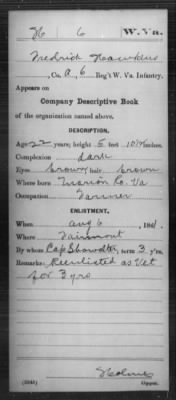 H 6 W. Va.
Fredrick Hawkins
, Co. A, 6 Reg't W. Va. Infantry.
Appears on
Company Descriptive Book
of the organization named above.
DESCRIPTION.
Age 22 years; height 5 feet 10 1/4 inches.
Complexion Dark
Eyes brown; hair brown
Where born Marion Co. Va
Occupation Farmer
ENLISTMENT.
When Aug 6, 1861.
Where Fairmont
By whom Cap Showalter; term 3 y'rs.
Remarks: Reenlisted as Vet
for 3 yrs
Holmes
Copyist.